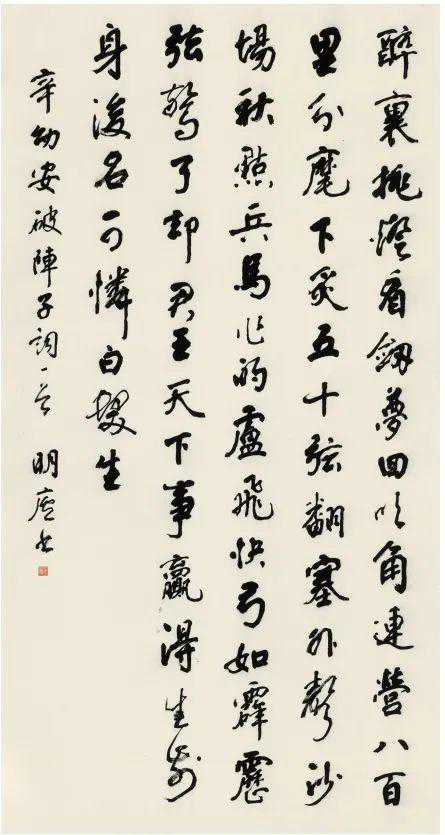 醉裏挑燈看劔夢回吹角連營八百
里分麾下炙五十弦翻塞外聲沙
場秋點兵馬作的盧飛快弓如霹靂
弦驚了却君王天下事贏得生前
身後名可憐白髮生
辛幼安破陣子詞一首 明廬書